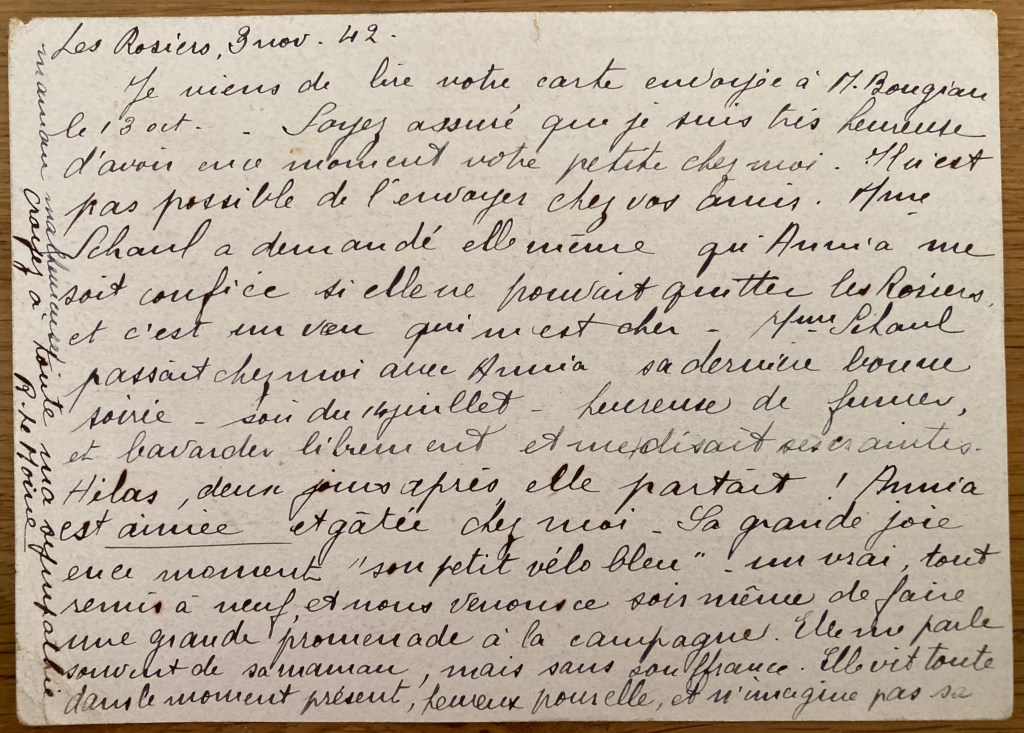 Les Rosiers, 3 nov. 42.
Je viens de lire votre carte envoyée à M. Bougian
le 13 oct. - Soyez assuré que je suis très heureuse
d'avoir en ce moment votre petite chez moi. Il n'est
pas possible de l'envoyer chez vos amis. Mme
Schaul a demandé elle même qu'Annia me
soit confiée si elle ne pouvait quitter les Rosiers,
et c'est un vœu qui m'est cher - Mme Schaul
passait chez moi avec Annia sa dernière bonne
soirée - soir du 14 juillet - heureuse de fumer,
et bavarder librement et me disait ses craintes.
Hélas, deux jours après elle partait ! Annia
est aimée et gâtée chez moi - Sa grande joie
en ce moment "son petit vélo bleu" - un vrai, tout
remis à neuf, et nous venons ce soir même de faire
une grande promenade à la campagne. Elle me parle
souvent de sa maman, mais sans souffrance. Elle vit toute
dans le moment présent, heureux pour elle, et n'imagine pas sa
maman malheureuse
Croyez à toute ma sympathie
R. Le Moine